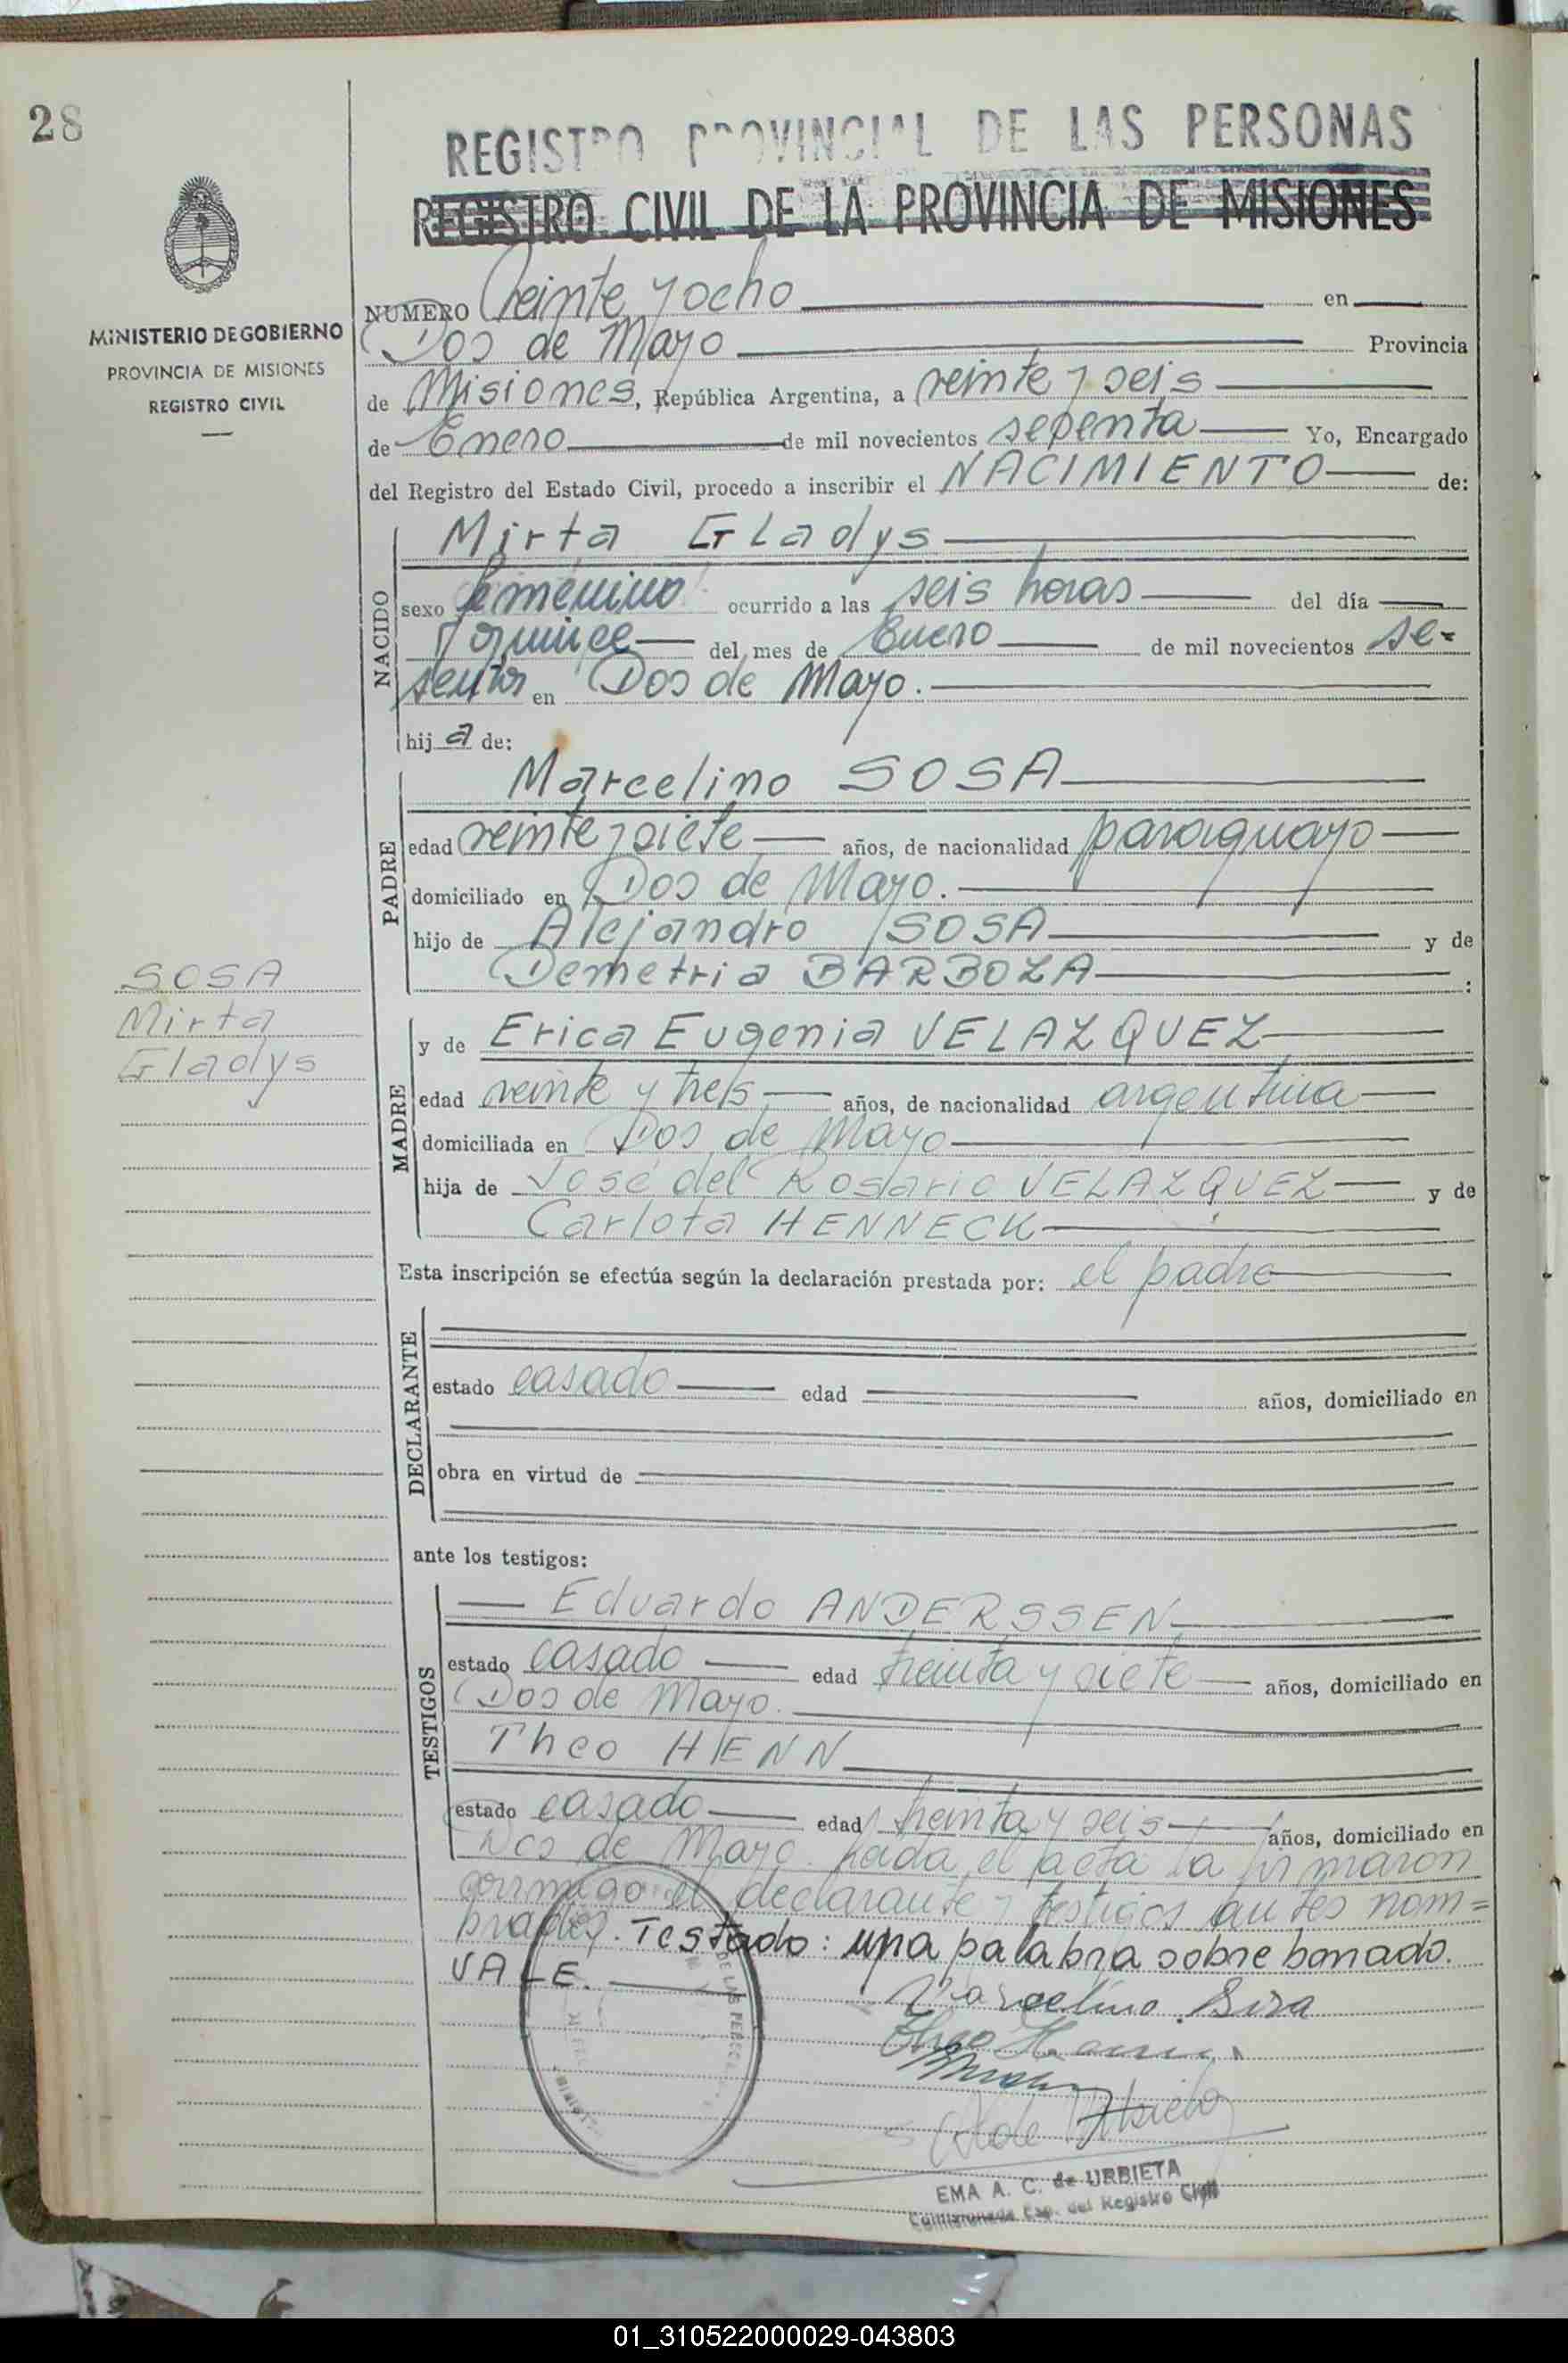 28
REGISTRO PROVINCIAL DE LAS PERSONAS
REGISTRO CIVIL DE LA PROVINCIA DE MISIONES
MINISTERIO DE GOBIERNO
PROVINCIA DE MISIONES
REGISTRO CIVIL
NUMERO Veinte y ocho en
Dos de Mayo Provincia
de Misiones, República Argentina, a veinte y seis
de Enero de mil novecientos setenta Yo, Encargado
del Registro del Estado Civil, procedo a inscribir el NACIMIENTO de:
NACIDO
Mirta Gladys
sexo femenino ocurrido a las seis horas del día
quince del mes de Enero de mil novecientos se-
tenta en Dos de Mayo.
hij a de:
PADRE
Marcelino SOSA
edad veinte y siete años, de nacionalidad paraguayo
domiciliado en Dos de Mayo.
hijo de Alejandro SOSA y de
Demetria BARBOZA :
SOSA
Mirta
Gladys
MADRE
y de Erica Eugenia VELAZQUEZ
edad veinte y tres años, de nacionalidad argentina
domiciliada en Dos de Mayo
hija de José del Rosario VELAZQUEZ y de
Carlota HENNECK
Esta inscripción se efectúa según la declaración prestada por: el padre
DECLARANTE
estado casado edad años, domiciliado en
obra en virtud de
ante los testigos:
TESTIGOS
Eduardo ANDERSSEN
estado casado edad treinta y siete años, domiciliado en
Dos de Mayo.
Theo HENN
estado casado edad treinta y seis años, domiciliado en
Dos de Mayo. el acta la firmaron
conmigo el declarante y testigos antes nom=
brados. Testado: una palabra sobre borrado.
VALE.
Marcelino Sosa
Theo Henn
EMA A. C. de URBIETA
Comisionada Esp. del Registro Civil
01_310522000029-043803